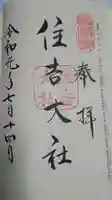 奉拝
住吉大社
令和元年七月十四日